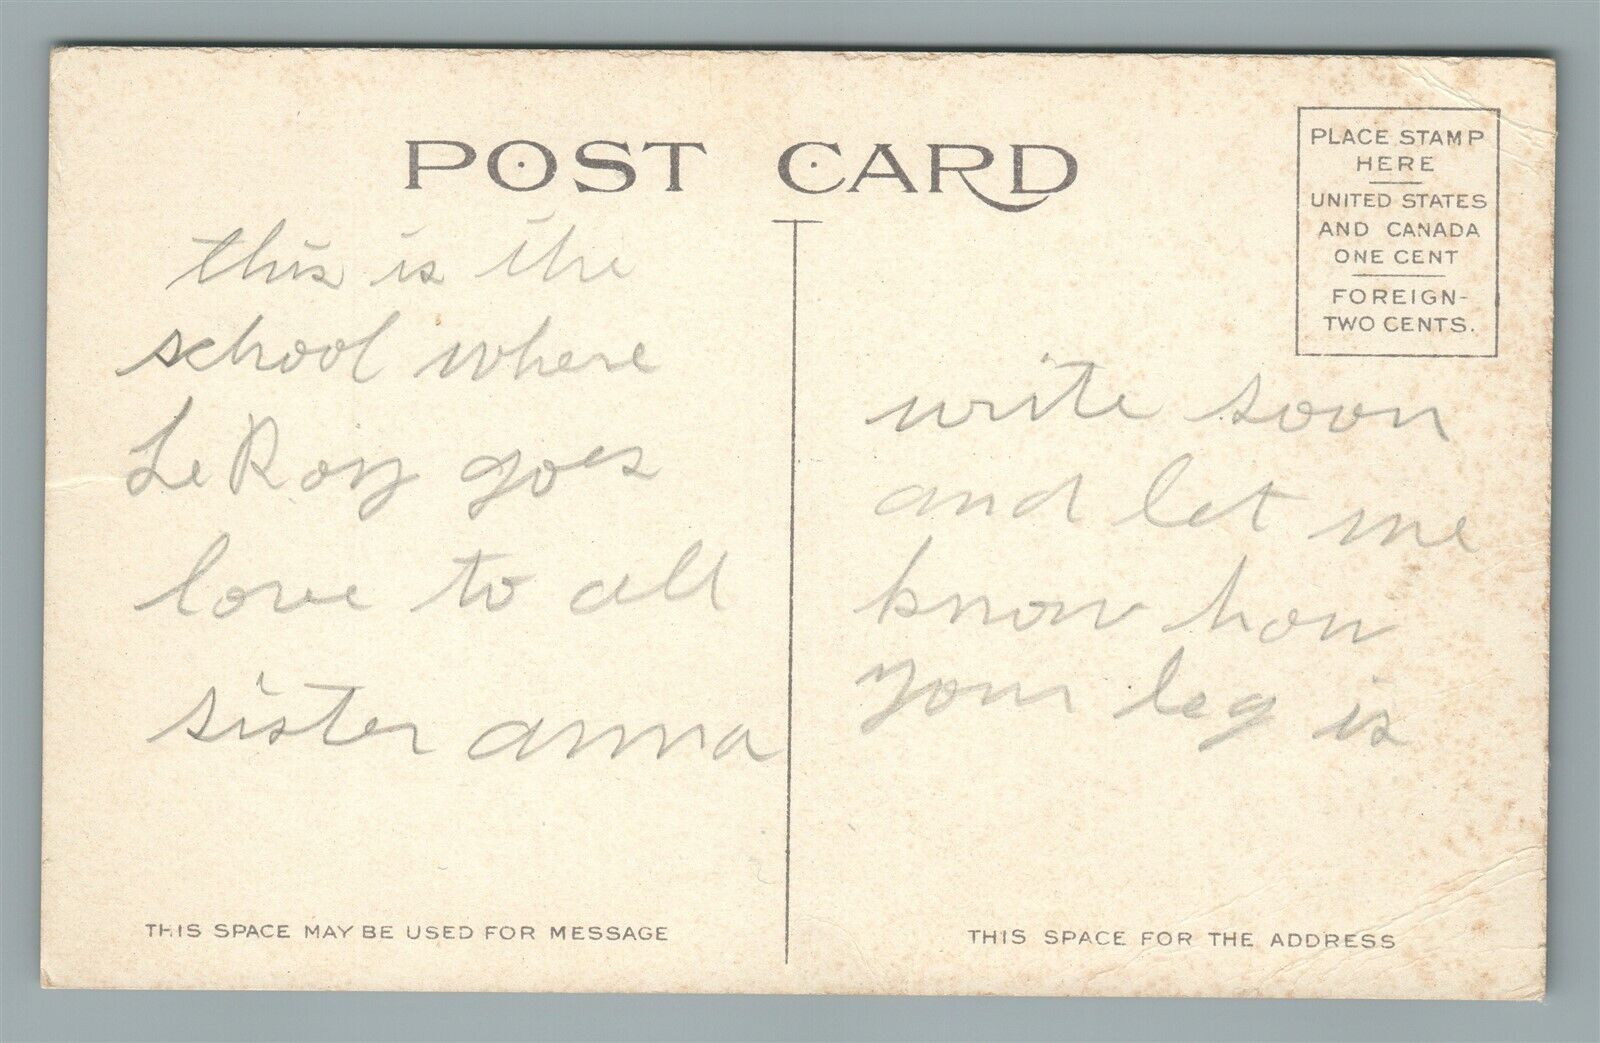 POST CARD
PLACE STAMP
HERE
UNITED STATES
AND CANADA
ONE CENT
FOREIGN-
TWO CENTS.
this is the
school where
LeRoy goes
love to all
sister anna
write soon
and let me
know how
your leg is
THIS SPACE MAY BE USED FOR MESSAGE
THIS SPACE FOR THE ADDRESS